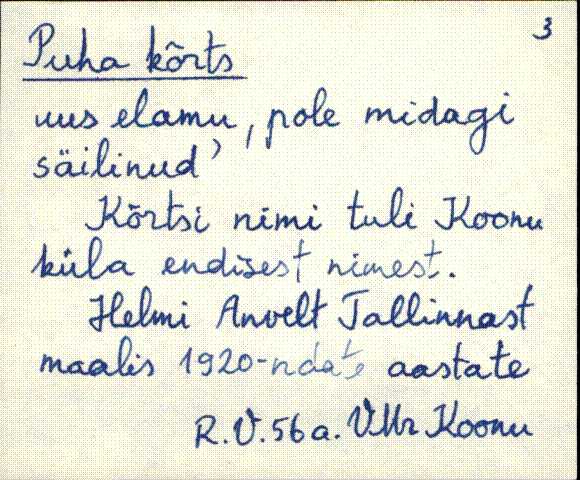 3
Puha kõrts
uus elamu, pole midagi
säilinud'
Kõrtsi nimi tuli Koonu
küla endisest nimest.
Helmi Anvelt Tallinnast
maalis 1920-ndate aastate
R.V. 56 a. VMr Koonu